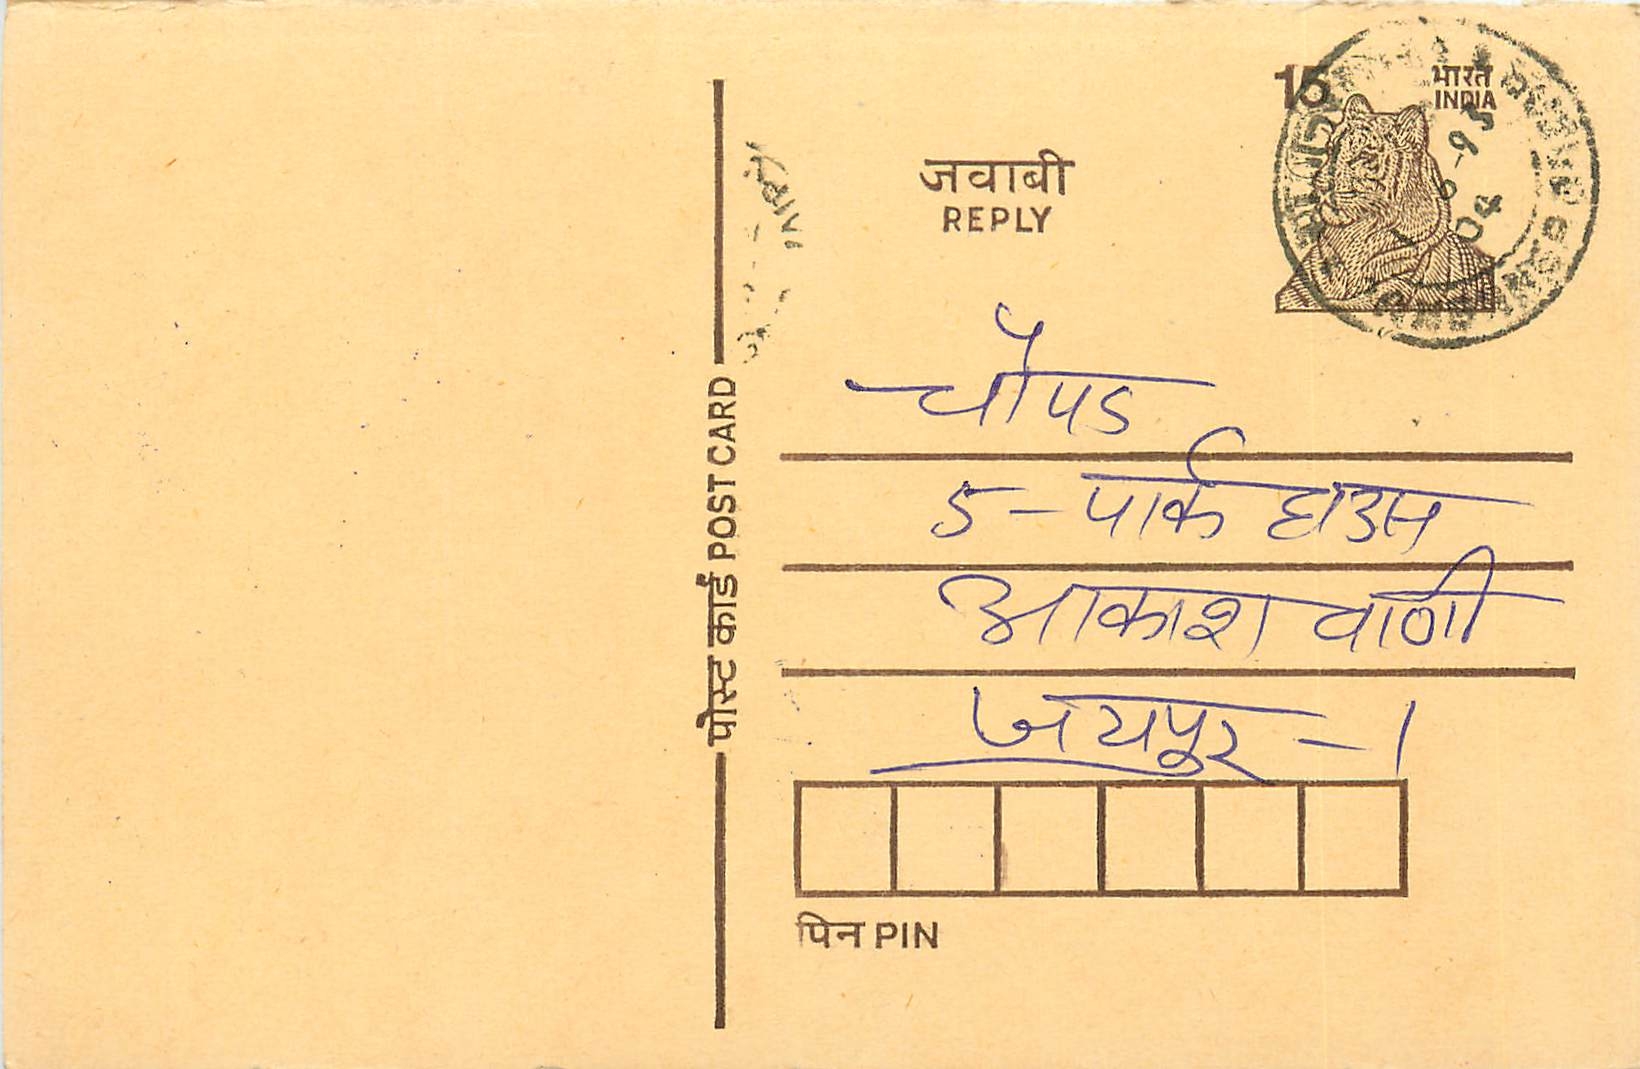 15
भारत
INDIA
जवाबी
REPLY
पोस्ट कार्ड POST CARD
चौपड
5-पार्क हाउस
आकाशवाणी
जयपुर-1
पिन PIN